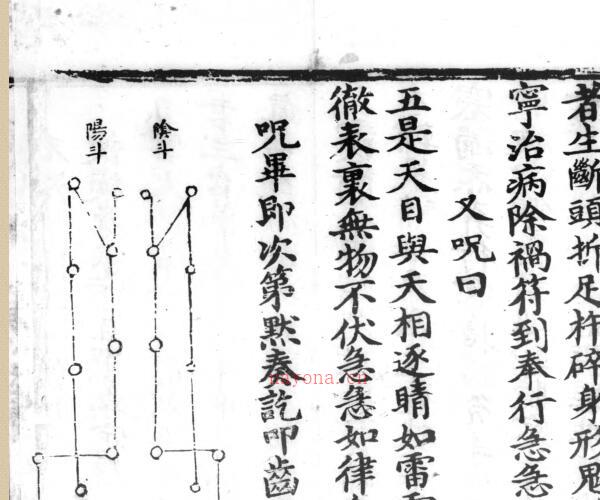 者生斷頭折足杵碎身形鬼
寧治病除禍符到奉行急急
又呪曰
五是天目與天相逐睛如雷
徹表裏無物不伏急急如律
呪畢即次第默奏訖叩齒
陰斗
陽斗
nayona.cn